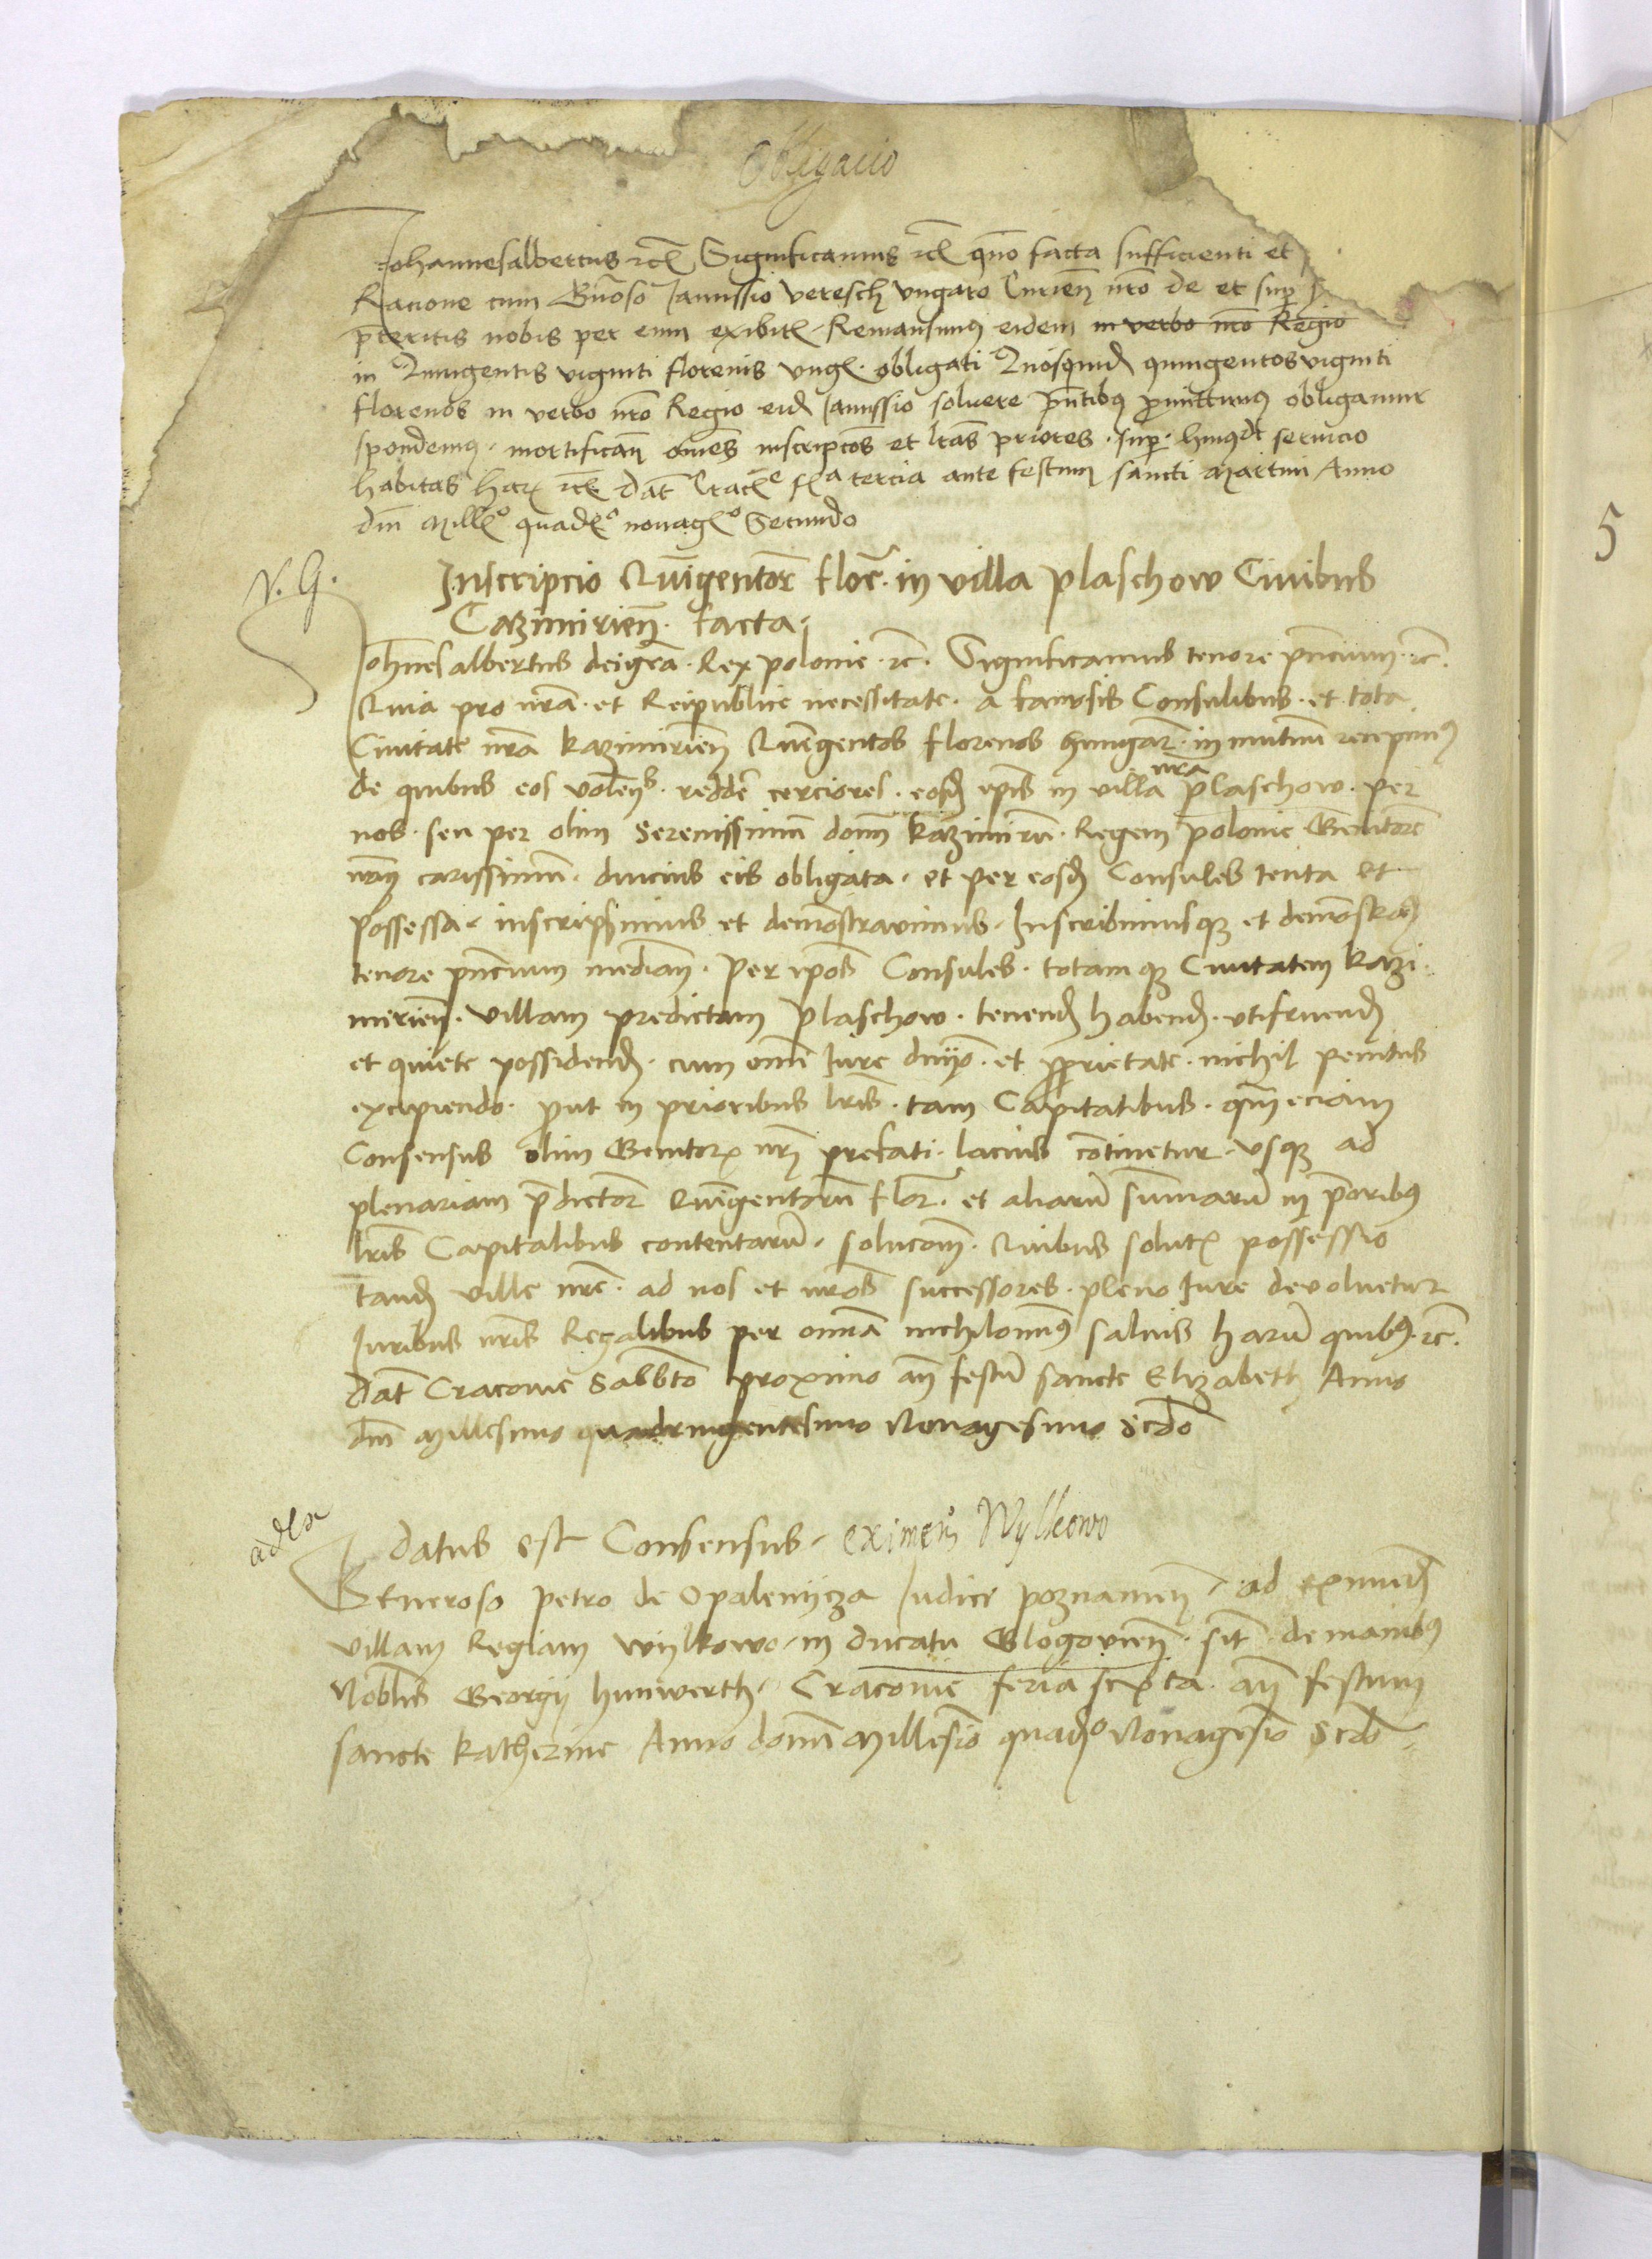 Obligacio
Johannesalbertus etc Significamus etc quo facta sufficienti et
Racione cum Gnoso Janussio veresch vngaro Curien nro de et sup
preteritis nobis per eum exibit Remansimus eidem in verbo nro Regio
in Quingentis viginti florenis vng obligati Quosquid quingentos viginti
florenos in verbo nro Regio eid Janussio soluere pntibus promittimus obligamur
spondemus mortifican omes inscripcoes et lras priores sup huiusmodi seruicio
habitas har etc dat Crac fa tercia ante festum sancti Martini Anno
dni Millo quado nonago Secundo
N. G.
Inscripcio Quingentor flor. in villa plaschow Ciuibus
Cazimirien. facta
Johnesalbertus deigra. Rex polonie. etc. Significamus tenore pncium. etc.
Quia pro nra. et Reipublice necessitate. a famosis Consulibus. et tota
Ciuitate nra kazimirien Quingentos florenos hungar. in mutuum recepimus
de quibus eos volens. redde cerciores. eosd ipis in villa nra plaschow. per
nos. seu per olim Serenissimum domm kazimirum. Regem polonie Genitore
nrm carissimum. diucius eis obligata. et per eosd Consules tenta et
possessa. inscripsimus et demostrauimus. Inscribimusque et demostra
tenore pncium median. Per ipos Consules. totamque Ciuitatem kazi
mirien. villam predictam plaschow. tenend habend. vtifruend
et quiete possidend. cum omi Jure dnio. et pprietate. nichil penitus
excipiendo. put in prioribus lris. tam Capitatibus. qm eciam
Consensus olim Genitor nri prefati. lacius continetur. vsque ad
plenariam pdictor Quingentorum flor. et aliarum summarum in prioribus
lris Capitalibus contentarum. solucom. Quibus solut possessio
eiusd ville nre. ad nos et nros successores. pleno Jure deuoluetur
Juribus nris Regalibus per omia nichilominus saluis harum quibus. etc.
Dat Cracouie Sabbto proximo an festum sancte Elizabeth Anno
dni Millesimo quadringentesimo Nonagesimo Scdo
datus est Consensus. eximen Wylkowo
Generoso petro de Opalenycza Judici poznamen. ad eximend
villam Regiam wylkowo in ducatu Glogouien. sit de manibus
Noblis Georgij hunwerth. Cracouie feria sexta. an festum
sancte katherine Anno domi Millesio quado Nonagesio Scdo
5